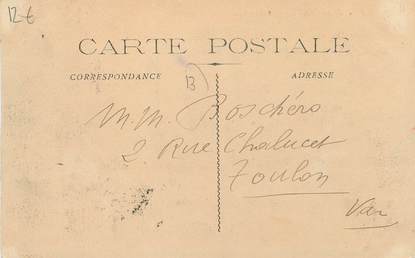 12€
CARTE POSTALE
CORRESPONDANCE ADRESSE
B
M.M. Boschéro
2 Rue Chalucet
Toulon
Var